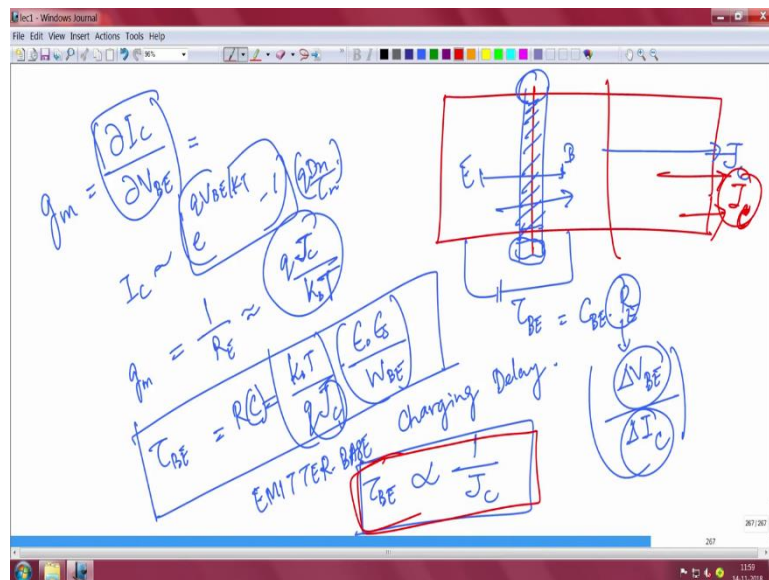 lec1 - Windows Journal
File Edit View Insert Actions Tools Help
98%
B I
g_m = ∂I_C / ∂V_BE =
I_C ~ e^{qV_BE/KT} - 1 (qD_n / τ_n)
g_m = 1/R_E ≈ qJ_C / k_bT
τ_BE = R(C) = (k_bT / qJ_C) (ε_0 ε_s / W_BE)
EMITTER-BASE Charging Delay.
τ_BE ∝ 1/J_C
E B J_C
J_C
τ_BE = C_BE · R_E
(ΔV_BE / ΔI_C)
267/267
267
11:59
14-11-2018